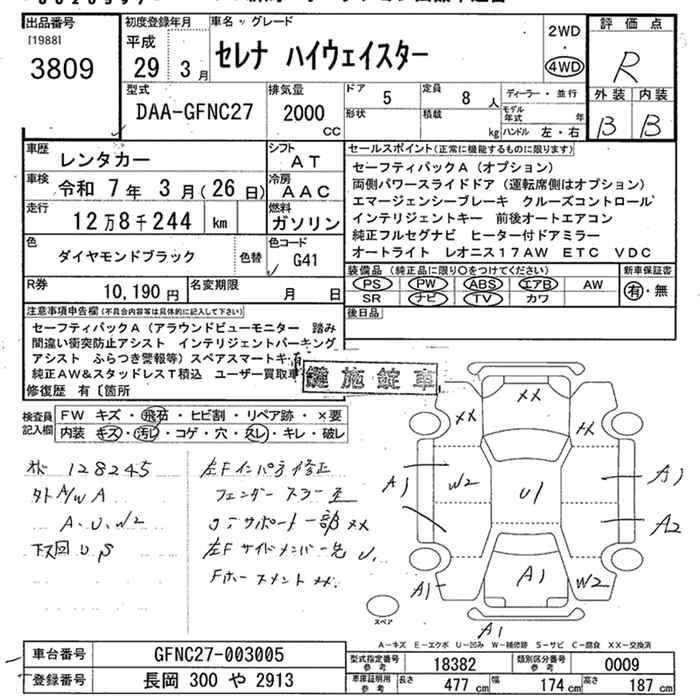 出品番号 初度登録年月 車名 グレード 2WD 評価点
[1988] 平成 セレナ ハイウェイスター 4WD
3809 29年 3月 R
型式 排気量 ドア 5 定員 8人 ディーラー・並行 外装 内装
DAA-GFNC27 2000CC 形状 積載 kg モデル年式 年 B B
ハンドル 左・右
車歴 レンタカー シフト AT セールスポイント(正常に機能するものに限ります)
車検 令和 7年 3月(26日) 冷房 AAC セーフティパックA(オプション)
両側パワースライドドア(運転席側はオプション)
走行 12万8千244 km 燃料 ガソリン エマージェンシーブレーキ クルーズコントロール
インテリジェントキー 前後オートエアコン
色 ダイヤモンドブラック 色替 色コード G41 純正フルセグナビ ヒーター付ドアミラー
オートライト レオニス17AW ETC VDC
R券 10,190円 名変期限 月 日 装備品(純正品に限り○をつけてください) 新車保証書
PS PW ABS エアB AW 有・無
SR ナビ TV カワ
注意事項申告欄(不具合内容等は具体的に記入して下さい) 後日品
セーフティパックA(アラウンドビューモニター 踏み
間違い衝突防止アシスト インテリジェントパーキング
アシスト ふらつき警報等)スペアスマートキー有
純正AW&スタッドレスT積込 ユーザー買取車
修復歴 有〔箇所
鍵施錠車
検査員記入欄 FW キズ・飛石・ヒビ割・リペア跡・×要
内装 キズ・汚レ・コゲ・穴・スレ・キレ・破レ
128245 左Fインパネ修正
外A/W A フェンダー
A.U.W2 コアサポート一部XX
下回 U S 左Fサイドメンバー先 U.
XX XX XX
A1 W2 U1 A1
A2
A1 A1 W2
A1
スペア
A-キズ E-エクボ U-凹み W-補修跡 S-サビ C-腐食 XX-交換済
車台番号 GFNC27-003005 型式指定番号 参考 18382 類別区分番号 参考 0009
登録番号 長岡 300 や 2913 車庫証明用 参考 長さ 477cm 幅 174cm 高さ 187cm